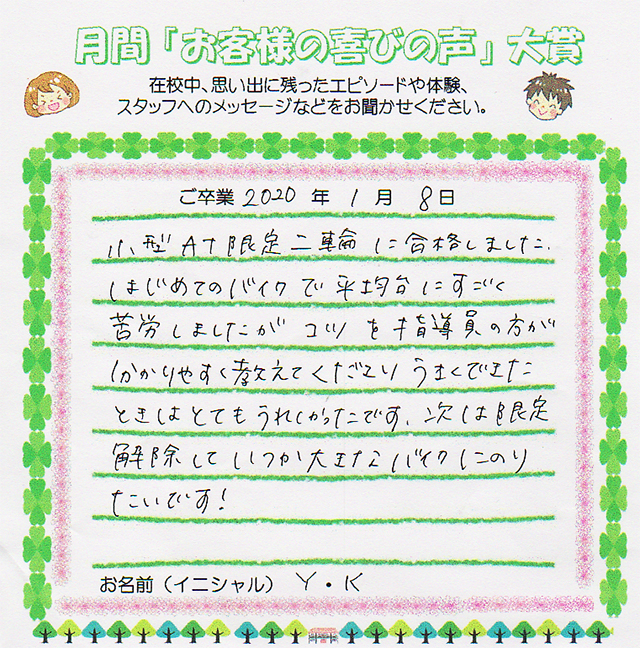 月間「お客様の喜びの声」大賞
在校中、思い出に残ったエピソードや体験、
スタッフへのメッセージなどをお聞かせください。
ご卒業 2020 年 1 月 8 日
小型AT限定二輪に合格しました。
はじめてのバイクで平均台にすごく
苦労しましたが コツを指導員の方が
分かりやすく教えてくださり うまくできた
ときはとてもうれしかったです。次は限定
解除して いつか大きなバイクにのり
たいです!
お名前(イニシャル) Y・K